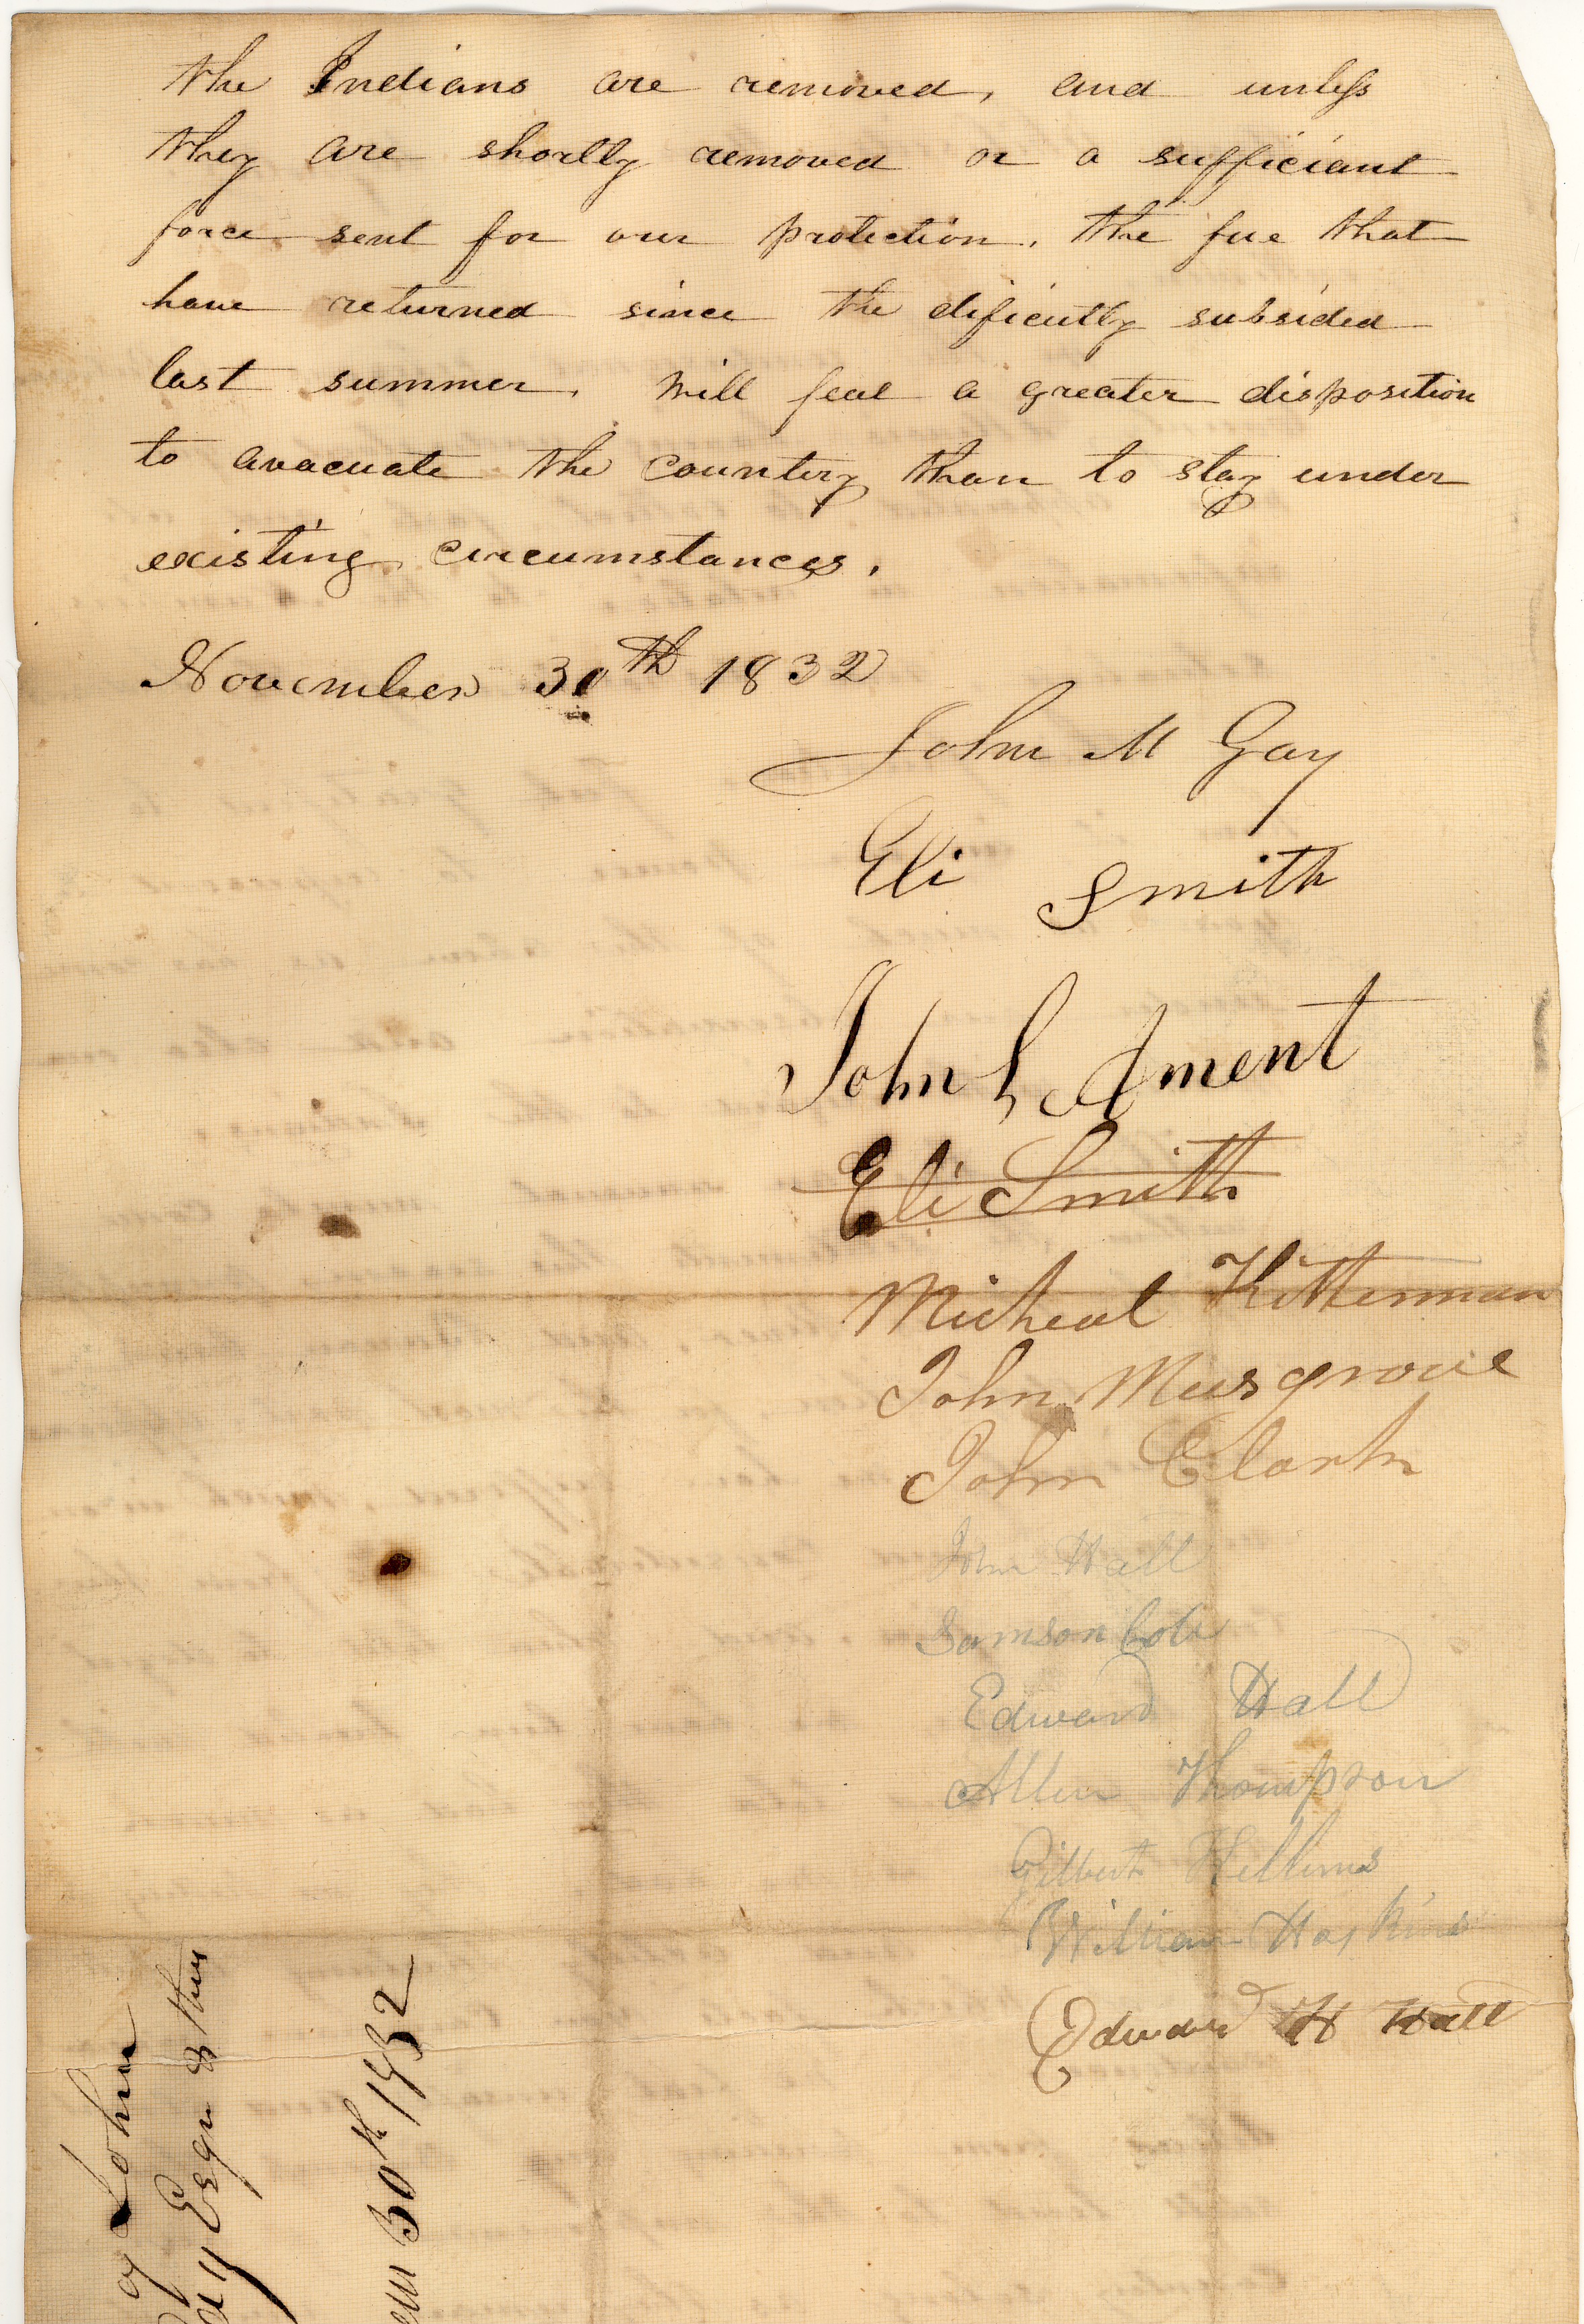 the Indians are removed, and unless
they are shortly removed or a sufficiant
force sent for our protection. the fue that
have returned since the dificulty subsided
last summer. will feal a greater disposition
to avacuate the country than to stay under
existing circumstances.
November 30th 1832
John M Gay
Eli Smith
John L Ament
Eli Smith
Micheal Kitterman
John Musgrove
John Clark
John Hall
Samson Cole
Edward Hall
Allen Thompson
Gilbert Hellums
William Hoskins
Edward H Hall
John
Esqr & thers
30th 1832